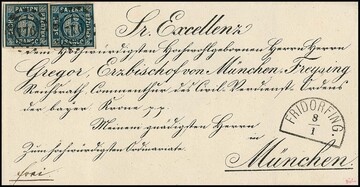 BAYERN
FRANCO
BAYERN
FRANCO
Sr. Excellenz
dem Hochwürdigsten Hochwohlgebornen Herrn Herrn
Gregor, Erzbischof von München Freysing
Reichsrath, Commenthur des Civil-Verdienst-Ordens
der bayer Krone p.p.
Meinem gnädigsten Herrn
in
Zum hochwürdigsten Ordinariate.
München.
frei
FRIDORFING.
8
1